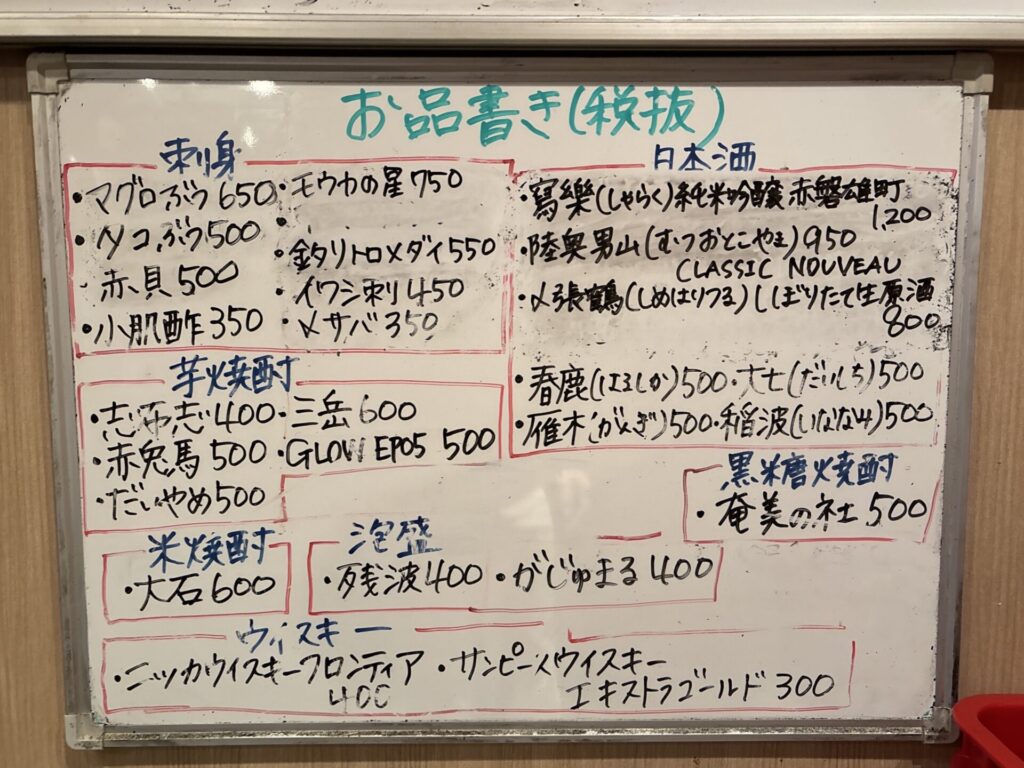 お品書き(税抜)
刺身
・マグロぶつ 650
・タコぶつ 500
赤貝 500
・小肌酢 350
・モウカの星 750
・
・釣りトロメダイ 550
・イワシ刺し 450
・〆サバ 350
日本酒
・寫樂(しゃらく)純米吟醸 赤磐雄町
1,200
・陸奥男山(むつおとこやま) 950
CLASSIC NOUVEAU
・〆張鶴(しめはりつる)しぼりたて生原酒
800
・春鹿(はるしか)500・大七(だいしち)500
・雁木(がんぎ)500・稲波(いななみ)500
芋焼酎
・志布志 400・三岳 600
・赤兎馬 500・GLOW EP05 500
・だいやめ 500
黒糖焼酎
・奄美の杜 500
米焼酎
・大石 600
泡盛
・残波 400・がじゅまる 400
ウィスキー
・ニッカウイスキーフロンティア
400
・サンピースウイスキー
エキストラゴールド 300